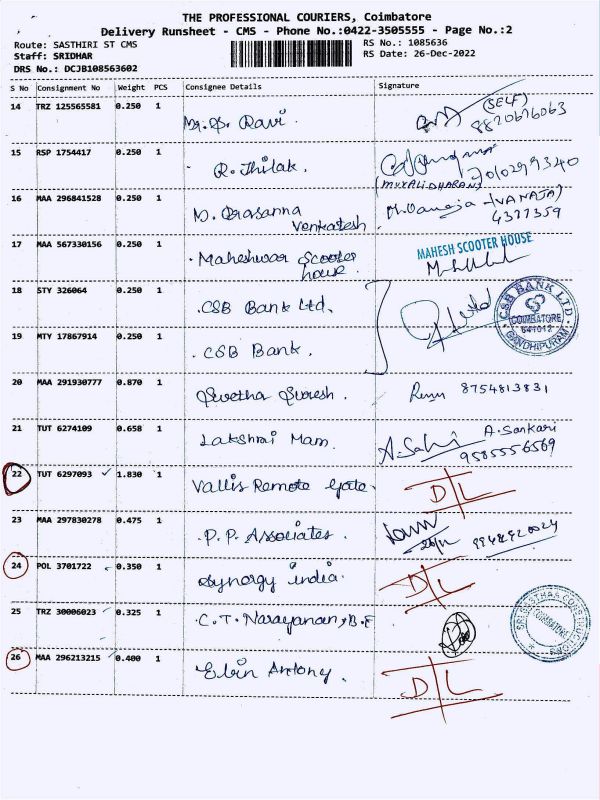 THE PROFESSIONAL COURIERS, Coimbatore
Delivery Runsheet - CMS - Phone No.:0422-3505555 - Page No.:2
Route: SASTHIRI ST CMS RS No.: 1085636
Staff: SRIDHAR RS Date: 26-Dec-2022
DRS No.: DCJB108563602
S No Consignment No Weight PCS Consignee Details Signature
14 TRZ 125565581 0.250 1 Mr. S. Ravi. (SELF) 8820676063
15 RSP 1754417 0.250 1 R. Thilak. (MURALIDHARAN)
16 MAA 296841528 0.250 1 Prasanna Venkatesh (VANAJA) 4377359
17 MAA 567330156 0.250 1 Maheshwar Scooter house. MAHESH SCOOTER HOUSE
18 STY 326064 0.250 1 CSB Bank Ltd. CSB BANK LTD. COIMBATORE 641012 GANDHIPURAM
19 MTY 17867914 0.250 1 CSB Bank.
20 MAA 291930777 0.870 1 Swetha Suresh. 8754813831
21 TUT 6274109 0.658 1 Lakshmi Mam. A. Sankari 9585556569
22 TUT 6297093 1.830 1 Vallis Remote Gate. D/L
23 MAA 297830278 0.475 1 P.P. Associates.
24 POL 3701722 0.350 1 Synergy india. D/L
25 TRZ 30006023 0.325 1 C.T. Narayanan, B.E COIMBATORE
26 MAA 296213215 0.400 1 Elvin Antony. D/L